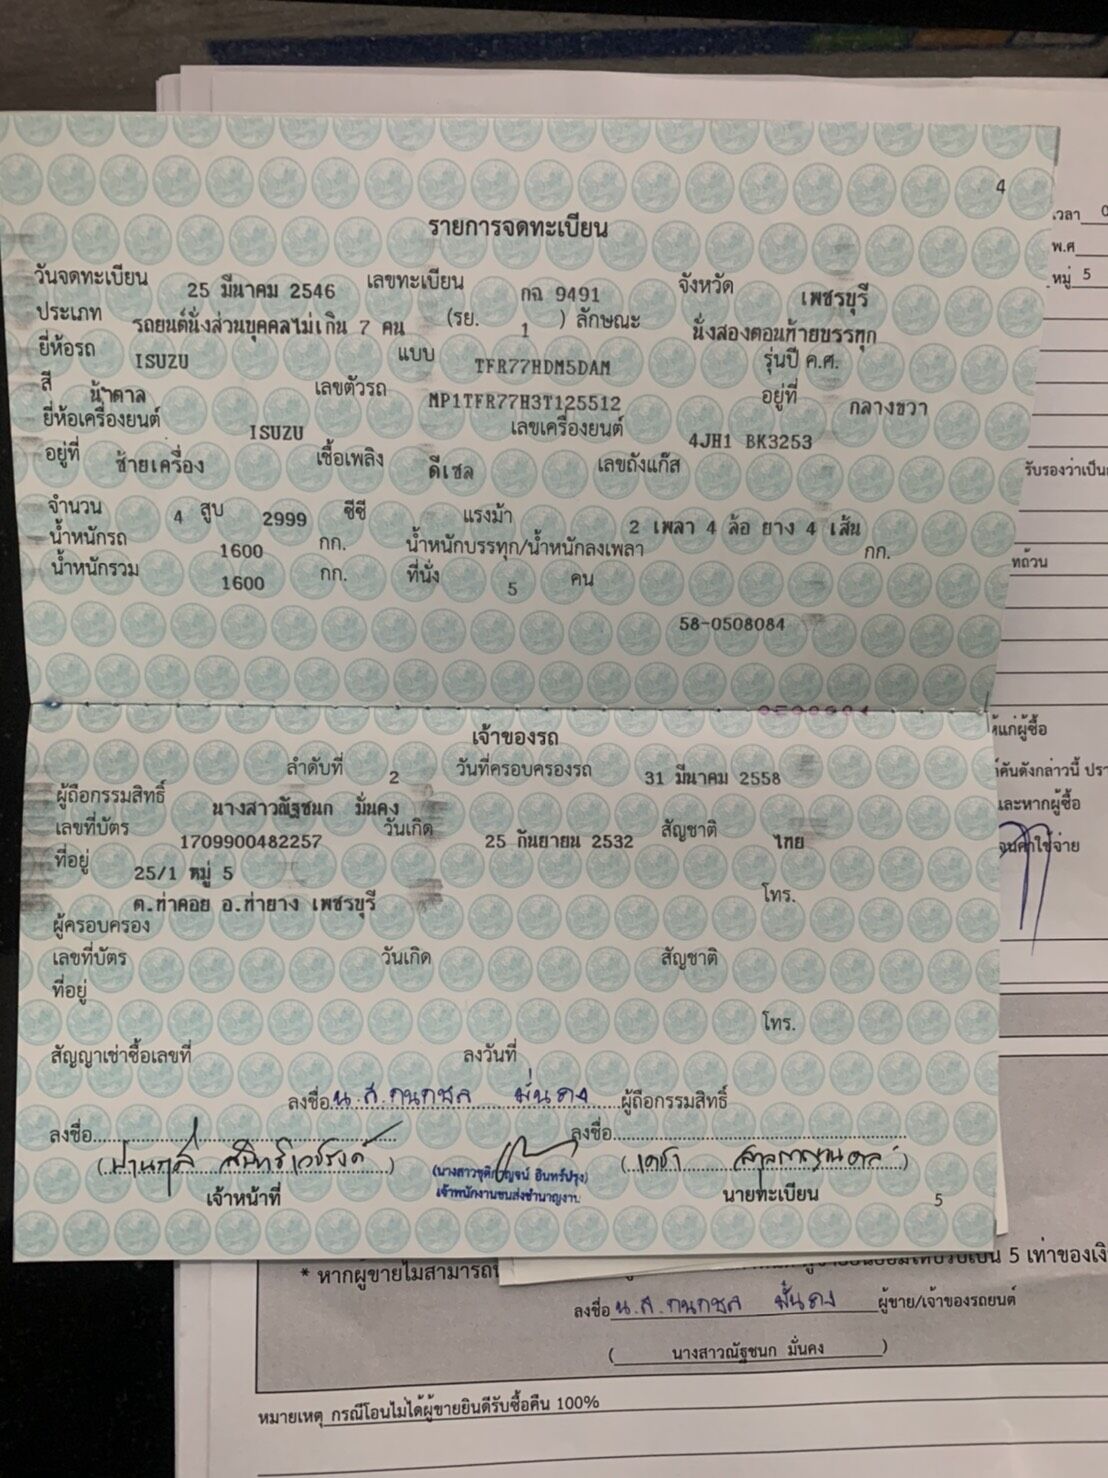 4
รายการจดทะเบียน
วันจดทะเบียน 25 มีนาคม 2546 เลขทะเบียน กฉ 9491 จังหวัด เพชรบุรี
ประเภท รถยนต์นั่งส่วนบุคคลไม่เกิน 7 คน (รย. 1 ) ลักษณะ นั่งสองตอนท้ายบรรทุก
ยี่ห้อรถ ISUZU แบบ TFR77HDM5DAM รุ่นปี ค.ศ.
สี น้ำตาล เลขตัวรถ MP1TFR77H3T125512 อยู่ที่ กลางขวา
ยี่ห้อเครื่องยนต์ ISUZU เลขเครื่องยนต์ 4JH1 BK3253
อยู่ที่ ซ้ายเครื่อง เชื้อเพลิง ดีเซล เลขถังแก๊ส
จำนวน 4 สูบ 2999 ซีซี แรงม้า 2 เพลา 4 ล้อ ยาง 4 เส้น
น้ำหนักรถ 1600 กก. น้ำหนักบรรทุก/น้ำหนักลงเพลา กก.
น้ำหนักรวม 1600 กก. ที่นั่ง 5 คน
58-0508084
เจ้าของรถ
ลำดับที่ 2 วันที่ครอบครองรถ 31 มีนาคม 2558
ผู้ถือกรรมสิทธิ์ นางสาวณัฐชนก มั่นคง
เลขที่บัตร 1709900482257 วันเกิด 25 กันยายน 2532 สัญชาติ ไทย
ที่อยู่ 25/1 หมู่ 5
ต.ท่าคอย อ.ท่ายาง เพชรบุรี โทร.
ผู้ครอบครอง
เลขที่บัตร วันเกิด สัญชาติ
ที่อยู่
โทร.
สัญญาเช่าซื้อเลขที่ ลงวันที่
ลงชื่อ น.ส. มั่นคง ผู้ถือกรรมสิทธิ์
ลงชื่อ ลงชื่อ
เจ้าหน้าที่ เจ้าพนักงานขนส่งชำนาญงาน นายทะเบียน
5
เวลา
พ.ศ
หมู่ 5
รับรองว่าเป็น
ให้แก่ผู้ซื้อ
คันดังกล่าวนี้
และหากผู้ซื้อ
* หากผู้ขายไม่สามารถ เป็น 5 เท่าของเงิน
ลงชื่อ น.ส. มั่นคง ผู้ขาย/เจ้าของรถยนต์
( นางสาวณัฐชนก มั่นคง )
หมายเหตุ กรณีโอนไม่ได้ผู้ขายยินดีรับซื้อคืน 100%